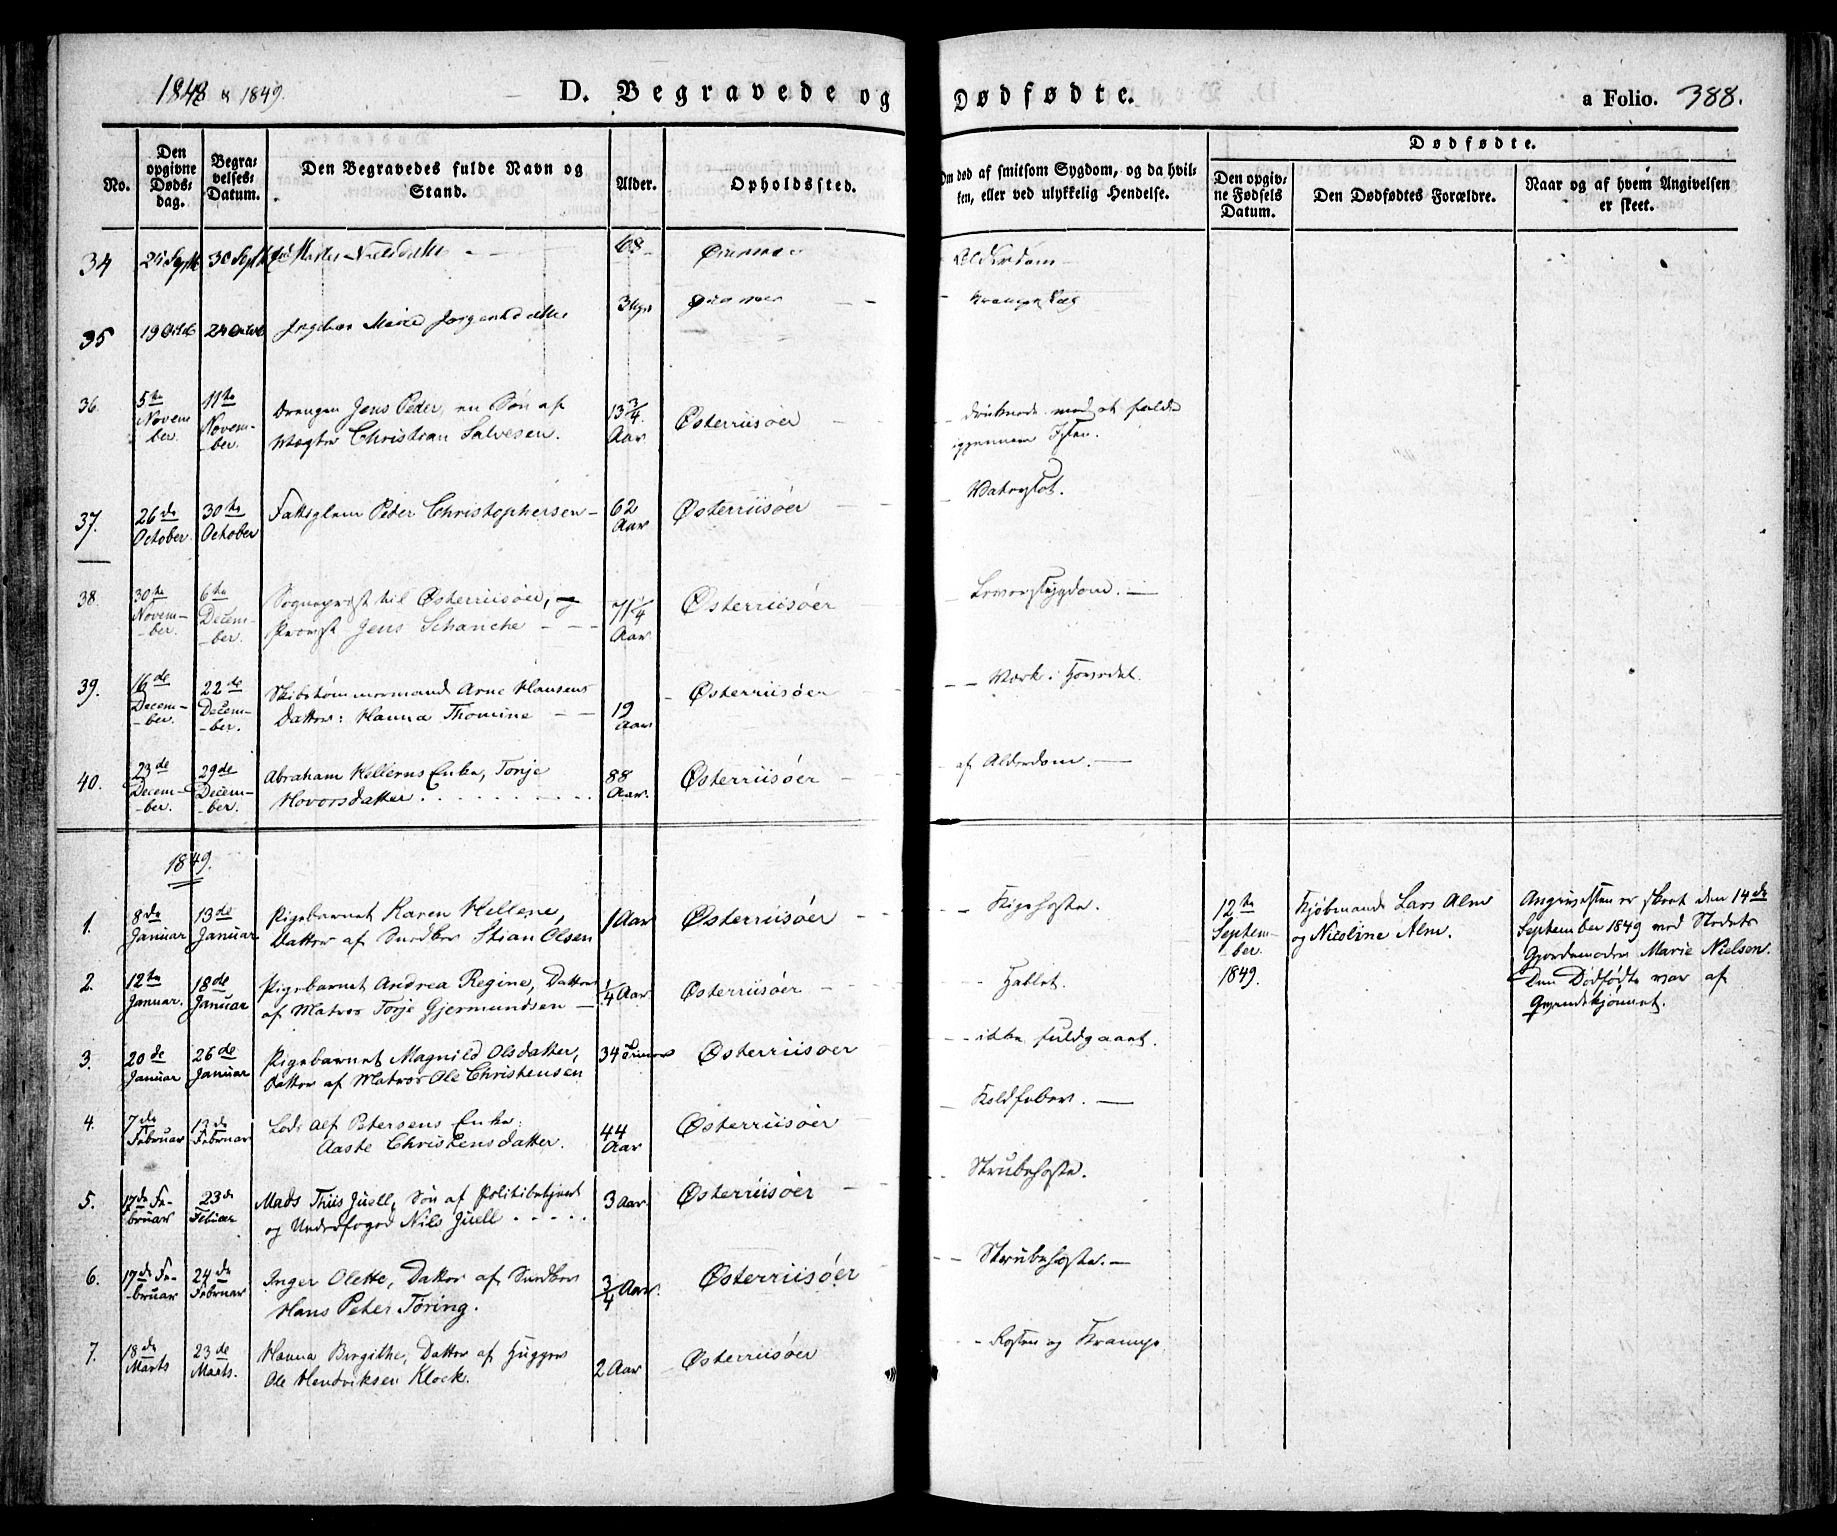 1848 & 1849.
D. Begravede og Dødfødte.
a Folio. 388.
No.
Den opgivne Døds-dag.
Begra-velses-Datum.
Den Begravedes fulde Navn og Stand.
Alder.
Opholdssted.
Om død af smitsom Sygdom, og da hvil-
ken, eller ved ulykkelig Hendelse.
Dødfødte.
Den opgiv-
ne Fødsels
Datum.
Den Dødfødtes Forældre.
Naar og af hvem Angivelsen
er skeet.
34
30 Sept
68
Alderdom
35
19 Octob
24 Octob
36.
5te Novem ber.
11te Novem- ber.
Drengen Jens Peder, en Søn af
Vægter Christian Salvesen.
13 3/4 Aar
Østerriisøer
druknede ved at falde
igjennem Isen.
37.
26de October.
30te October
Fattiglem Peder Christophersen
62 Aar
Østerriisøer
Vatersot.
38.
30te Novem- -ber.
6te Decem- -ber.
Sognepræst til Østerriisøer,
Provst Jens Schanche
71 1/4 Aar
Østerriisøer
Leversygdom.
39.
16de Decem- -ber.
22de Decem- -ber.
Skibstømmermand Arne Hansens
Datter: Hanna Thomine
19 Aar
Østerriisøer
Værk i Hovedet.
40.
23de Decem- -ber.
29de Decem- -ber.
Abraham Kellens Enke, Tonje
Hovorsdatter.
88 Aar.
Østerriisøer
af Alderdom.
1849.
1.
8de Januar
13de Januar
Pigebarnet Karen Kellene,
Datter af Snedker Stian Olsen
1 Aar
Østerriisøer
Kighoste.
12te
Septem-
-ber.
1849.
Kjøbmand Lars Alm
og Nicoline Alm.
Angivelsen er skeet den 14de
September 1849 ved Stedets
Gjordemoder Marie Nielsen.
Den Dødfødte var af
Qvindekjønnet.
2.
12te Januar.
18de Januar
Pigebarnet Andrea Regine, Datter
af Matros Torje Gjermundsen
1/4 Aar
Østerriisøer
3.
20de Januar
26de Januar
Pigebarnet Magnild Olsdatter,
Datter af Matros Ole Christensen
34 Timer
Østerriisøer
ikke fuldgaaet.
4.
7de Februar
13de Februar
Lods Alf Petersens Enke:
Aaste Christensdatter.
44 Aar
Østerriisøer
Koldfeber.
5.
17de Fe- bruar
23de Febuar
Mads Thiis Juell, Søn af Politibetjent
og Underfoged Nils Juell
3 Aar
Østerriisøer
Strubehoste.
6.
17de Fe- -bruar
24de Februar
Inger Olette, Datter af Snedker
Hans Peter Tøring.
3/4 Aar.
Østerriisøer
Strubehoste.
7.
18de Marts
23de Marts.
Hanna Birgithe, Datter af Hugger
Ole Hendriksen Klock.
2 Aar
Østerriisøer
og Krampe